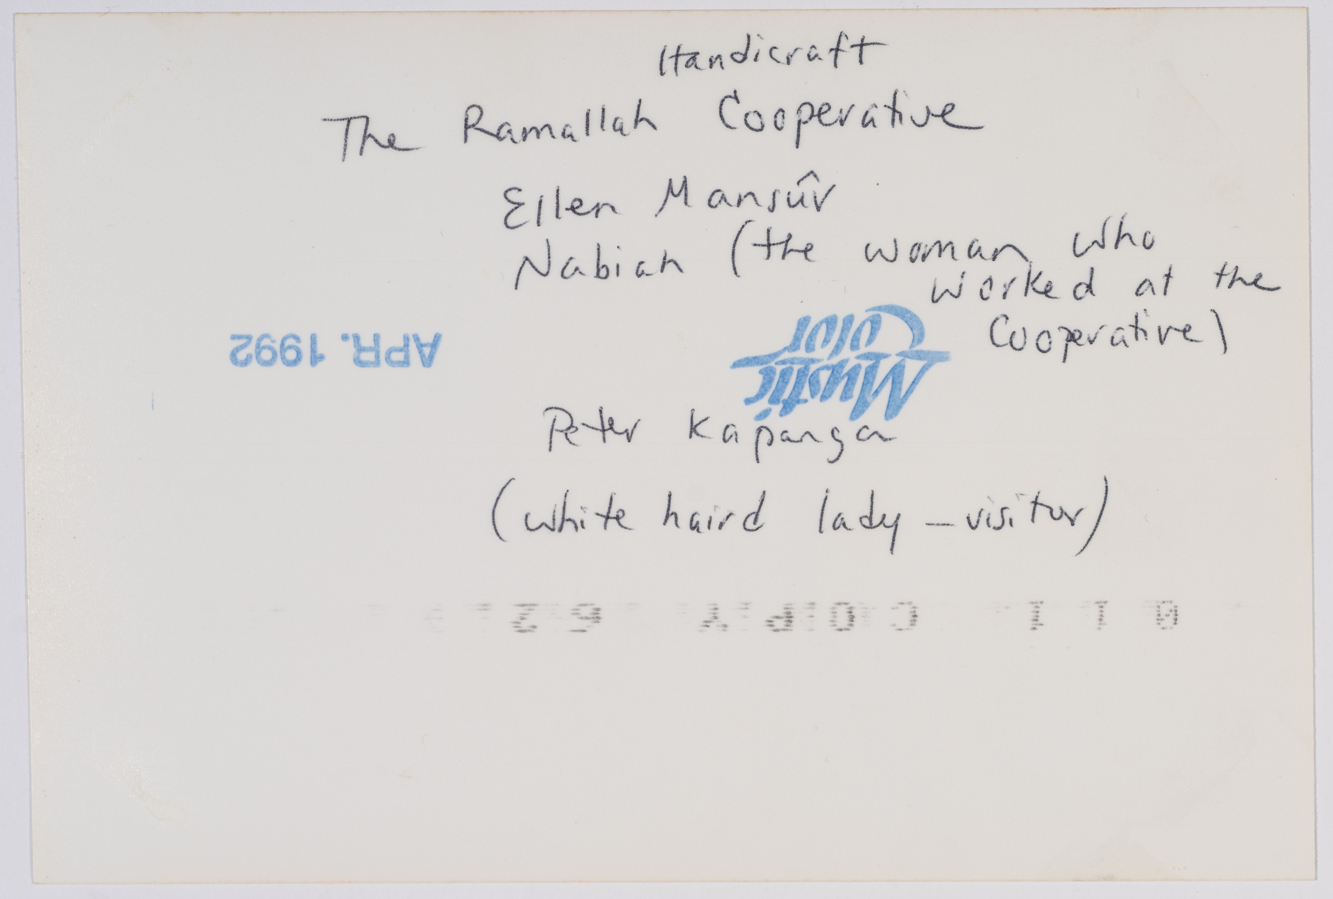 Handicraft
The Ramallah Cooperative
Ellen Mansûr
Nabiah (the woman who
worked at the
Cooperative)
APR. 1992
Mystic
Color
Peter Kapanga
(white haird lady – visitor)
0 1 1 1 COPY 62